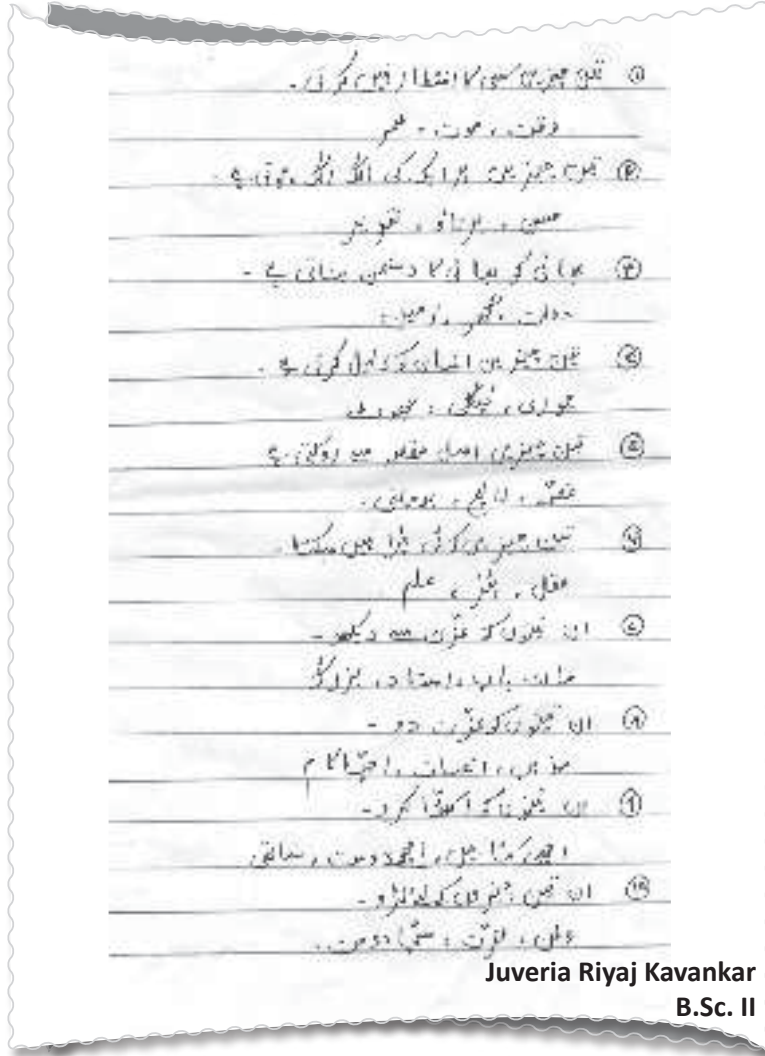 ① تین چیزیں کسی کا انتظار نہیں کرتی۔
وقت ، موت ، عمر
② تین چیزیں ہر ایک کی الگ الگ ہوتی ہے۔
③ بھائی کو بھائی کا دشمن بناتی ہے۔
دولت ،
④ تین چیزیں انسان کو ذلیل کرتی ہے۔
چوری ، چغلی ،
⑤ تین چیزیں اصل مقصد سے روکتی ہے
غصّہ ، لالچ ،
⑥ تین چیزیں کوئی چرا نہیں سکتا۔
عقل ، ہنر ، علم
⑦ ان تینوں کو عزّت سے دیکھو۔
ماں باپ ، استاد ، بزرگ
⑧ ان تینوں کو عزّت دو۔
احسان ، اچھّا کام
⑨ ان تینوں کو اکھٹّا کرو۔
اچھی کتابیں ، اچھے دوست ،
⑩ ان تین چیزوں
عزّت ، سچّا دوست۔
Juveria Riyaj Kavankar
B.Sc. II